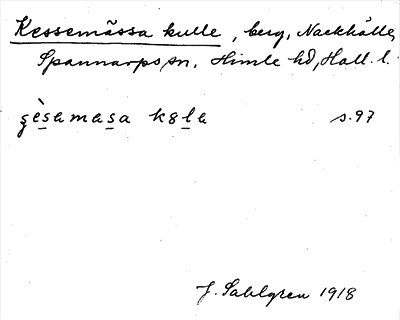 Kessemässa kulle, berg, Nackhälle,
Spannarps sn. Himle hd, Hall. l.
s. 97
J. Sahlgren 1918